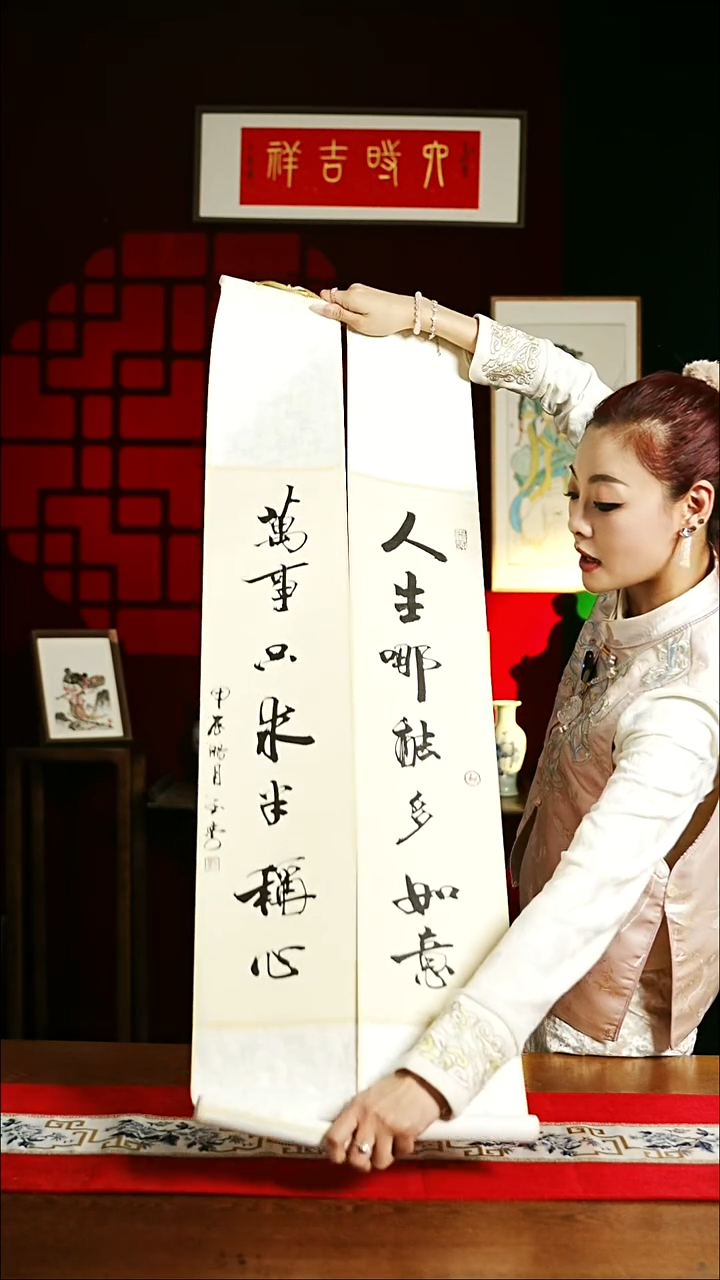 六時吉祥
人生哪能多如意
萬事只求半稱心
甲辰腊月